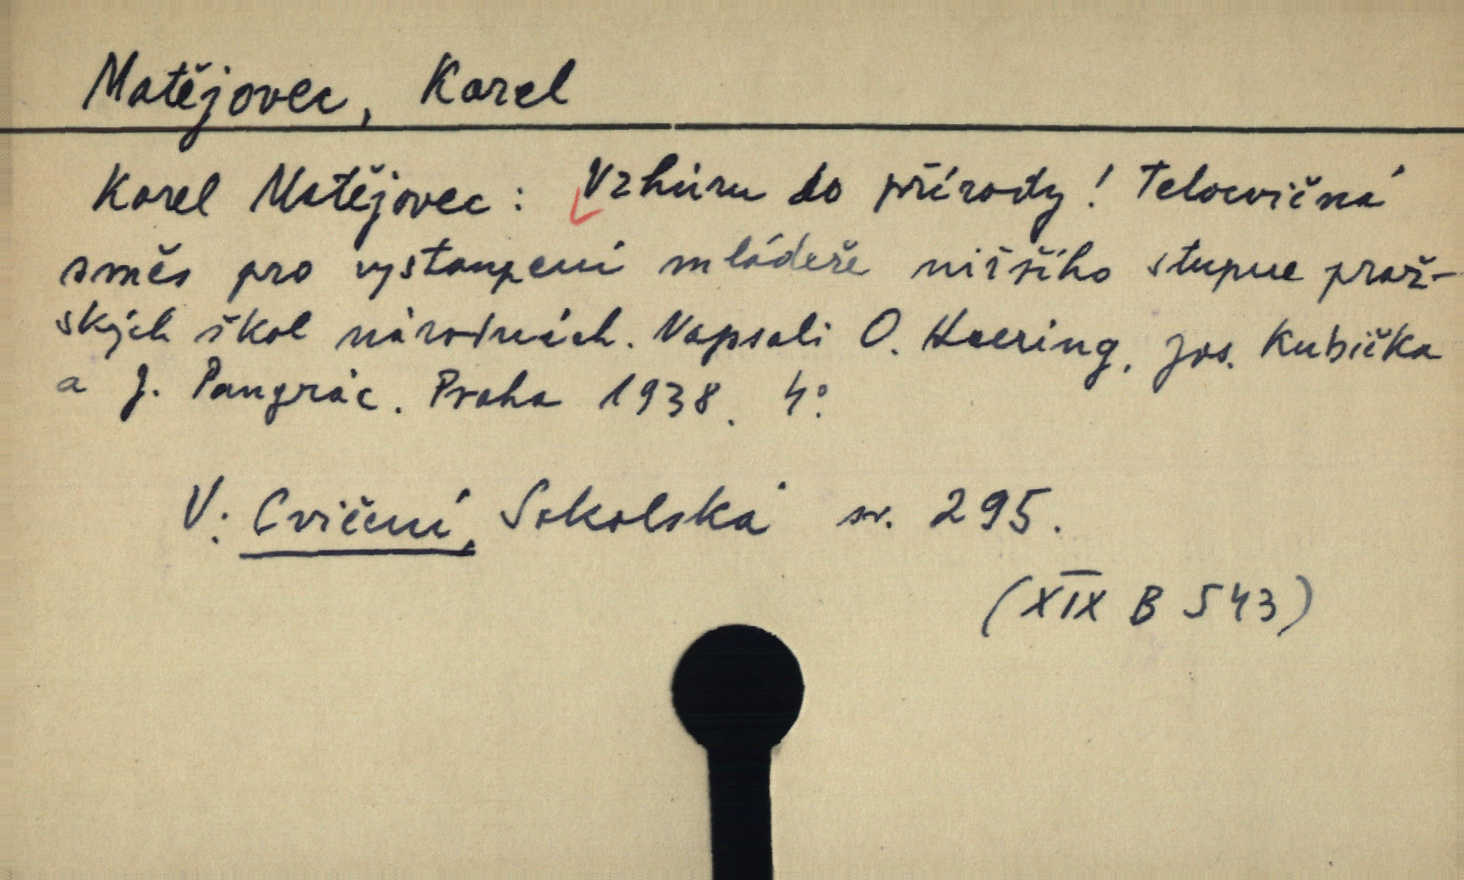 Matějovec, Karel
Karel Matějovec: Vzhůru do přírody! Tělocvičná
směs pro vystoupení mládeže nižšího stupně praž-
ských škol národních. Napsali O. Heering, Jos. Kubička
a J. Pangrác. Praha 1938. 4°.
V: Cvičení, Sokolská sv. 295.
(XIX B 543)